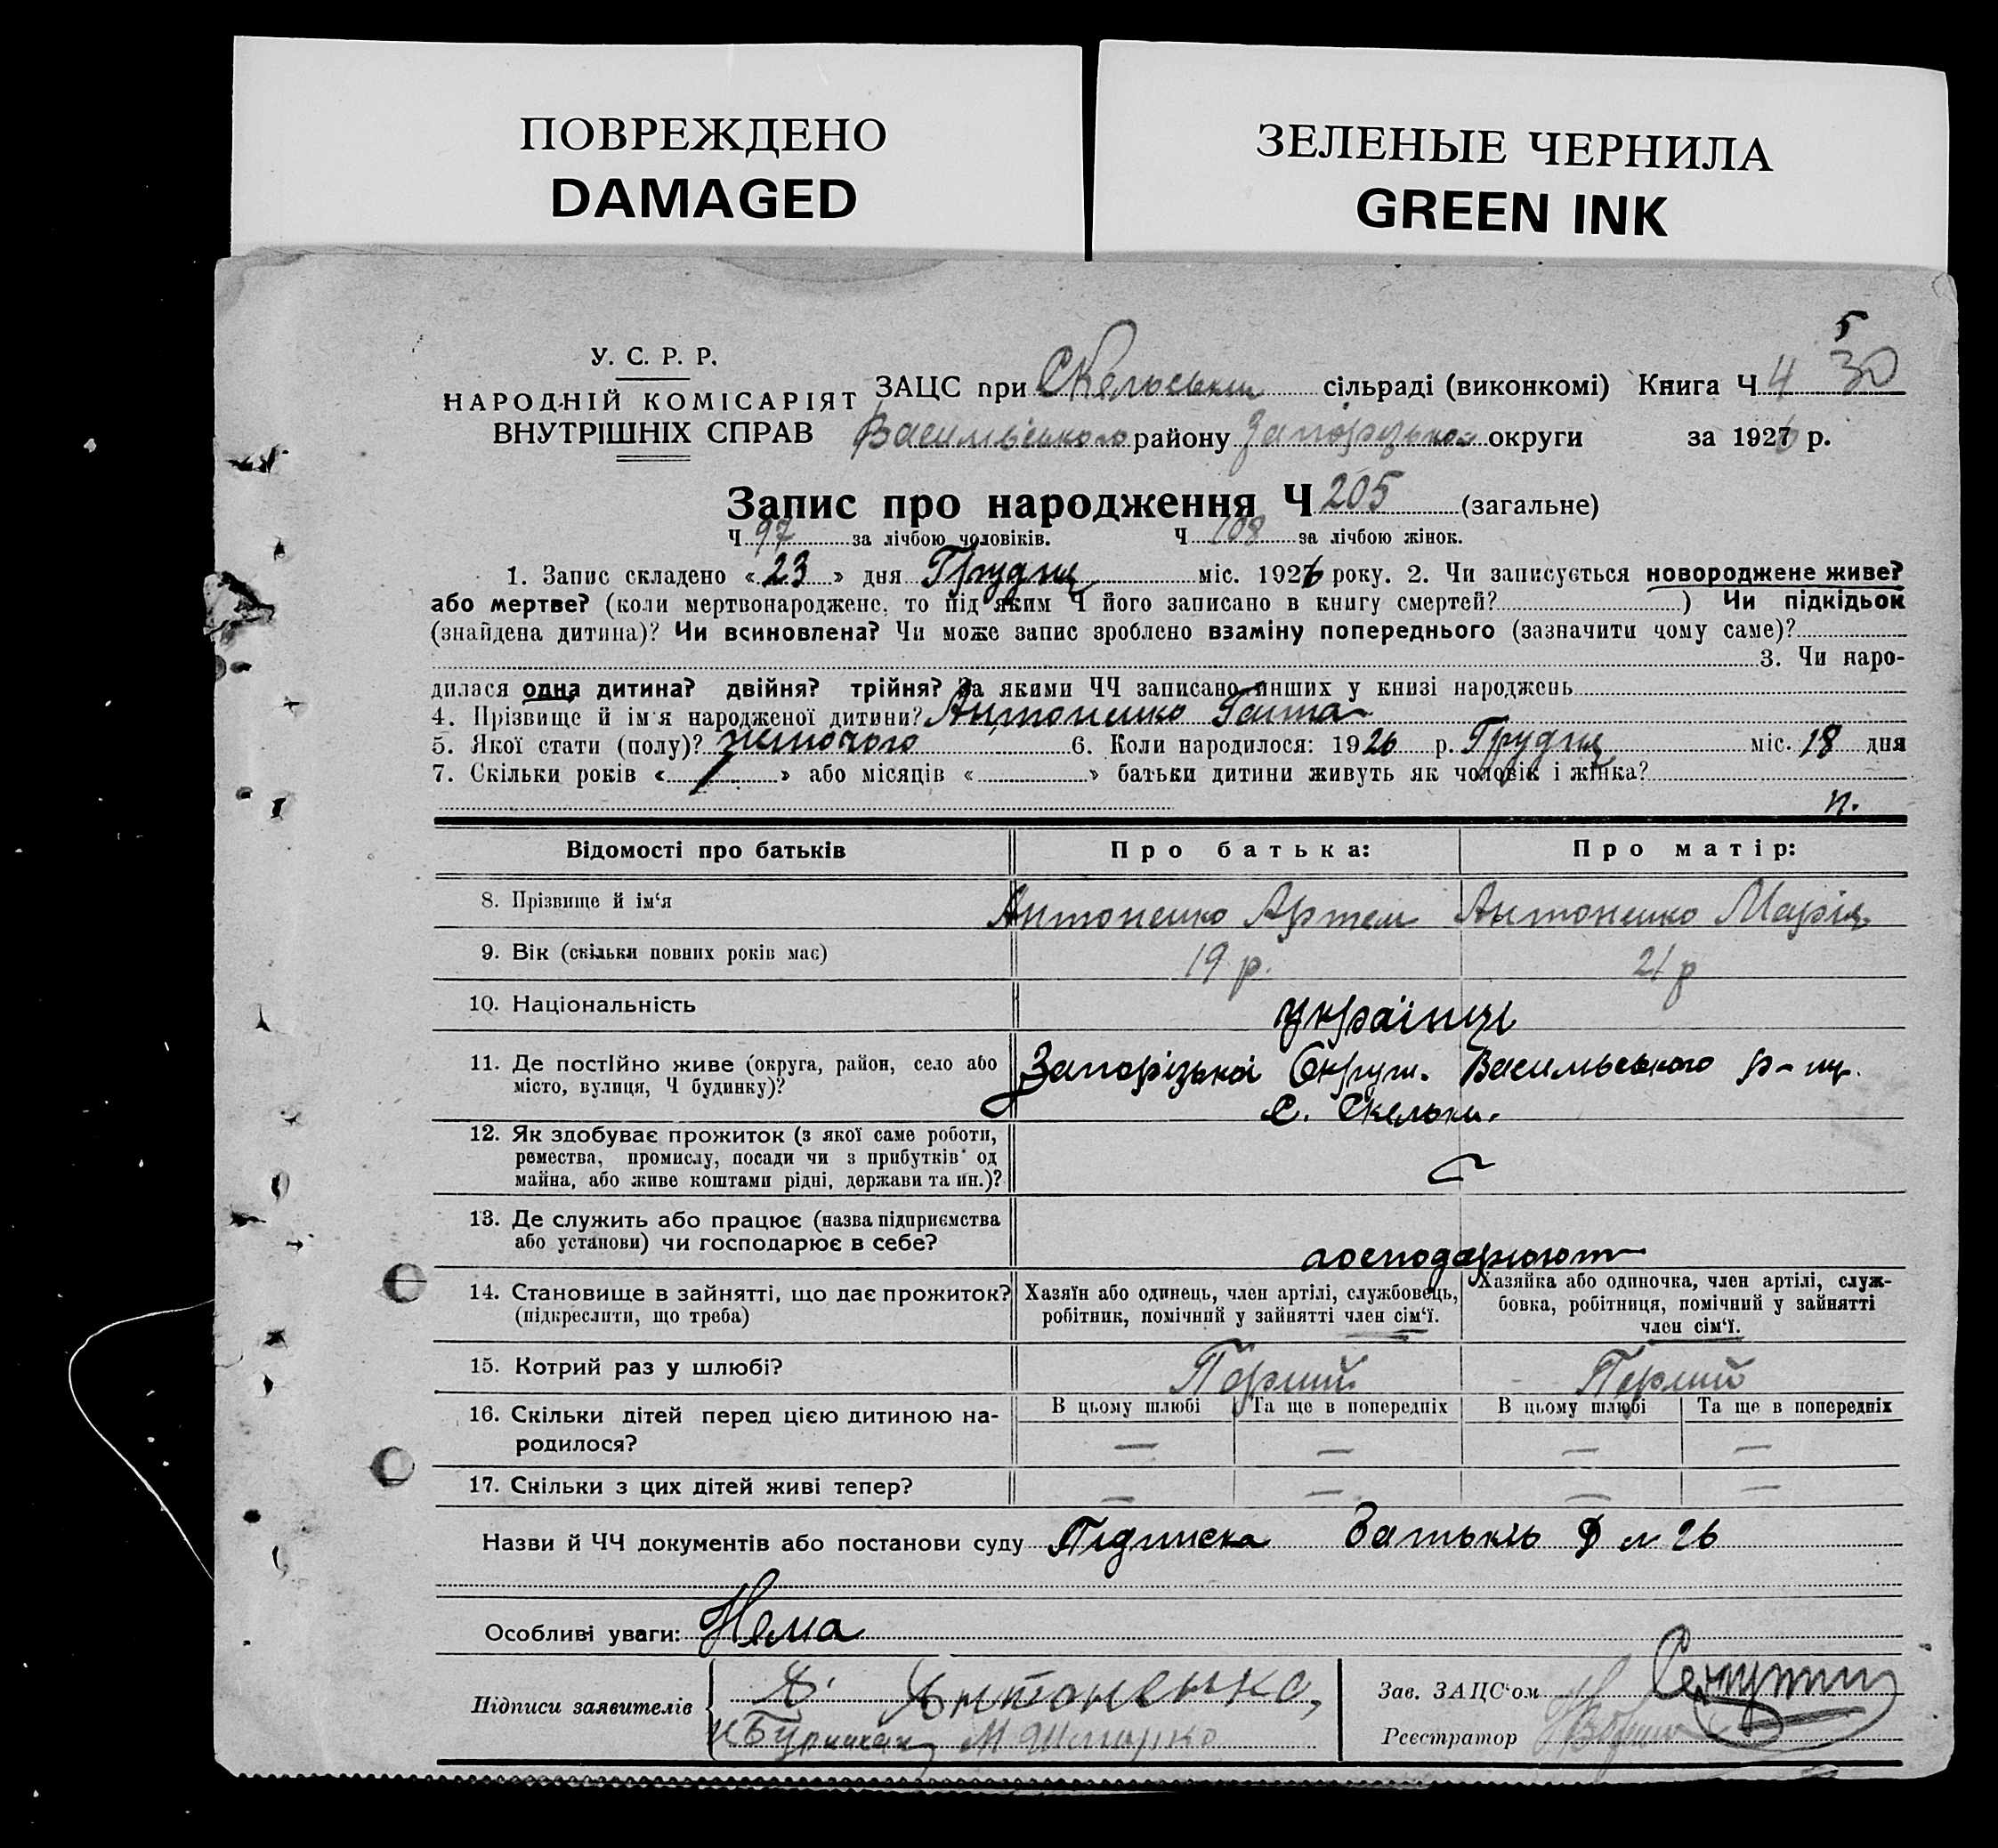 ПОВРЕЖДЕНО
DAMAGED
ЗЕЛЕНЫЕ ЧЕРНИЛА
GREEN INK
5
У. С. Р. Р.
НАРОДНІЙ КОМІСАРІЯТ
ВНУТРІШНІХ СПРАВ
ЗАЦС при Скельським сільраді (виконкомі) Книга Ч 4 30
Васильївського району Запорізької округи за 1926 р.
Запис про народження Ч 205 (загальне)
Ч 97 за лічбою чоловіків. Ч 108 за лічбою жінок.
1. Запис складено « 23 » дня Грудня міс. 1926 року. 2. Чи записується новороджене живе?
або мертве? (коли мертвонароджене, то під яким Ч його записано в книгу смертей? ) Чи підкідьок
(знайдена дитина)? Чи всиновлена? Чи може запис зроблено взаміну попереднього (зазначити чому саме)?
3. Чи наро-
дилася одна дитина? двійня? трійня? За якими ЧЧ записано инших у книзі народжень
4. Прізвище й ім'я народженої дитини? Антоненко Ганна
5. Якої стати (полу)? жіночого 6. Коли народилося: 1926 р. Грудня міс. 18 дня
7. Скільки років « 1 » або місяців « » батьки дитини живуть як чоловік і жінка?
п.
Відомості про батьків Про батька: Про матір:
8. Прізвище й ім'я Антоненко Артем Антоненко Марія
9. Вік (скільки повних років має) 19 р. 21 р
10. Національність українці
11. Де постійно живе (округа, район, село або Запорізької Округи. Васильевського р-ну.
місто, вулиця, Ч будинку)? с. Скельки.
12. Як здобуває прожиток (з якої саме роботи,
ремества, промислу, посади чи з прибутків од
майна, або живе коштами рідні, держави та ин.)?
13. Де служить або працює (назва підприємства
або установи) чи господарює в себе? господарюют
14. Становище в зайнятті, що дає прожиток? Хазяїн або одинець, член артілі, службовець, Хазяйка або одиночка, член артілі, служ-
(підкреслити, що треба) робітник, помічний у зайнятті член сім'ї. бовка, робітниця, помічний у зайнятті
член сім'ї.
15. Котрий раз у шлюбі? Перший Перший
16. Скільки дітей перед цією дитиною на- В цьому шлюбі Та ще в попередніх В цьому шлюбі Та ще в попередніх
родилося? — — — —
17. Скільки з цих дітей живі тепер? — — — —
Назви й ЧЧ документів або постанови суду Підписка Батьків 26
Особливі уваги: Нема
Підписи заявителів Антоненко,
Зав. ЗАЦС'ом
Реєстратор